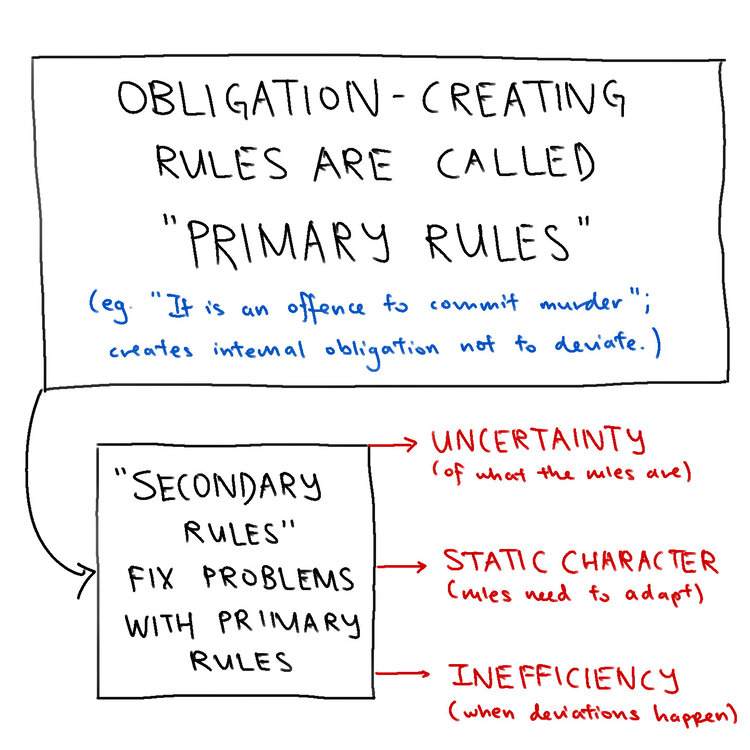 OBLIGATION-CREATING
RULES ARE CALLED
"PRIMARY RULES"
(eg. "It is an offence to commit murder";
creates internal obligation not to deviate.)
"SECONDARY
RULES"
FIX PROBLEMS
WITH PRIMARY
RULES
UNCERTAINTY
(of what the rules are)
STATIC CHARACTER
(rules need to adapt)
INEFFICIENCY
(when deviations happen)